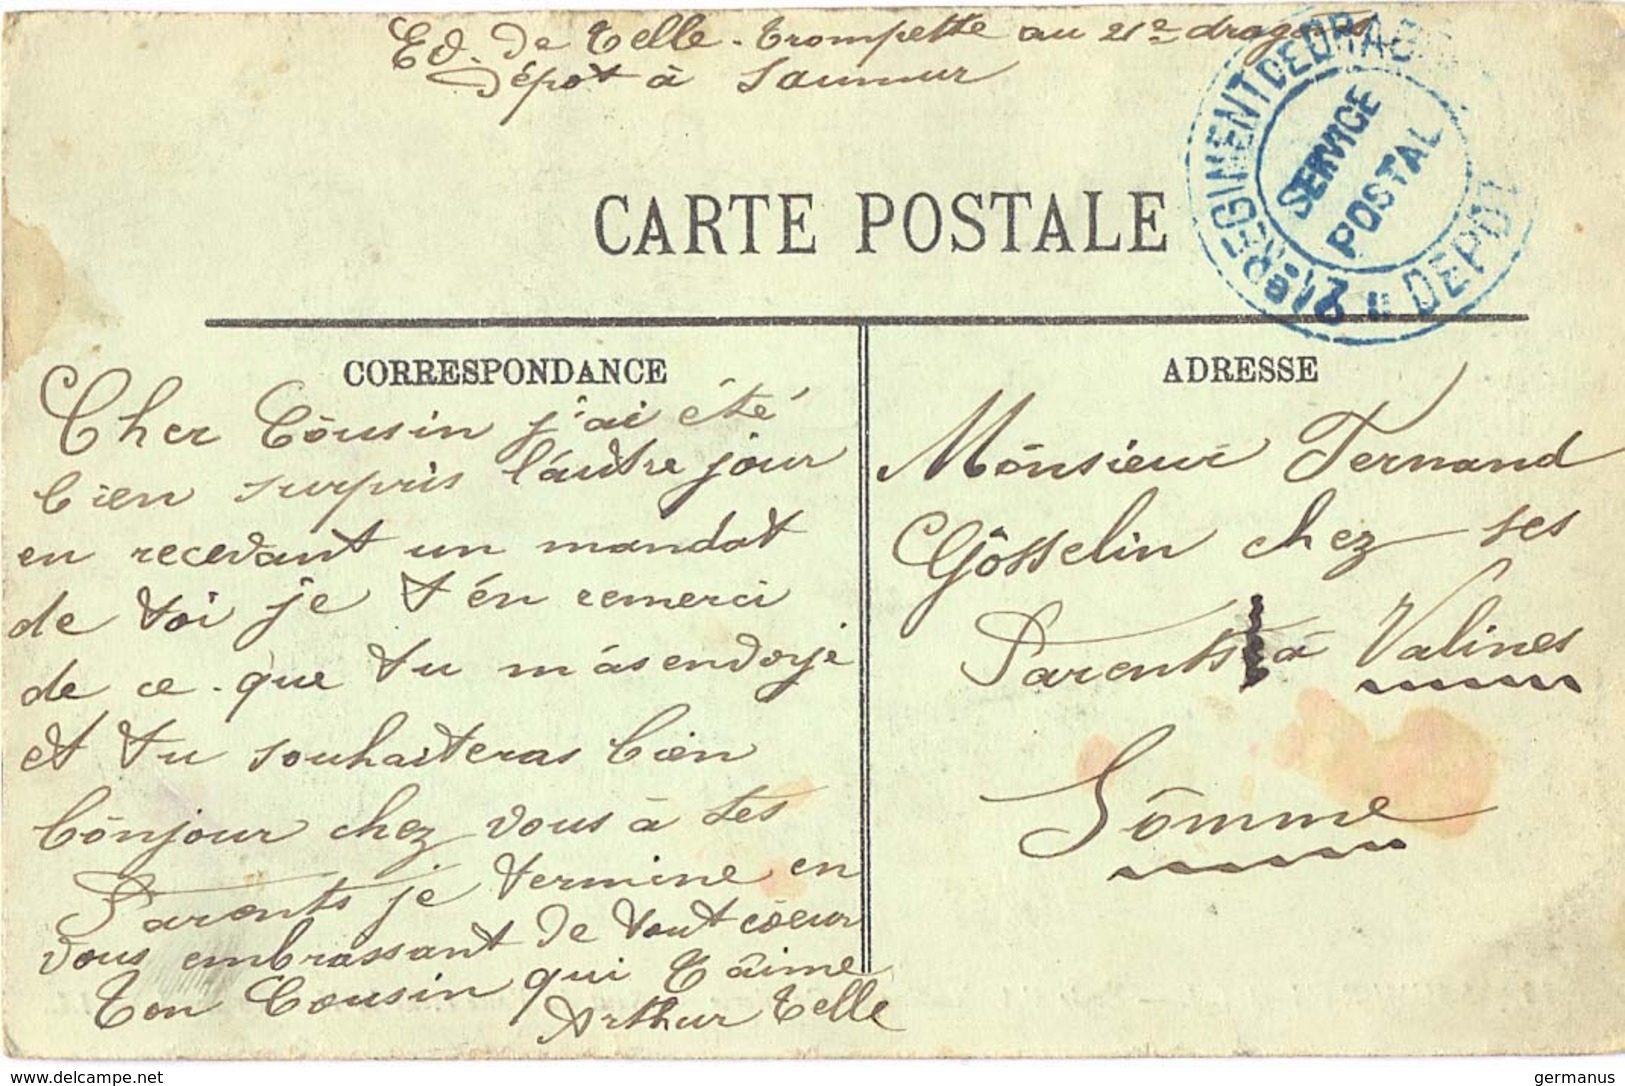 Ed. De Telle. trompette au 21e dragons
Dépot à Saumur
21e REGIMENT DE DRAGONS
SERVICE
POSTAL
DEPOT
CARTE POSTALE
CORRESPONDANCE
Cher Cousin j'ai été
bien surpris l'autre jour
en recevant un mandat
de toi je t'én remerci
de ce que tu m'as endoyé
et tu souhaiteras bien
bonjour chez vous à tes
Parents je termine en
vous embrassant de tout coeur
ton Cousin qui t'aime
Arthur Telle
ADRESSE
Monsieur Fernand
Gosselin chez ses
Parents à Valines
Somme
www.delcampe.net
germanus